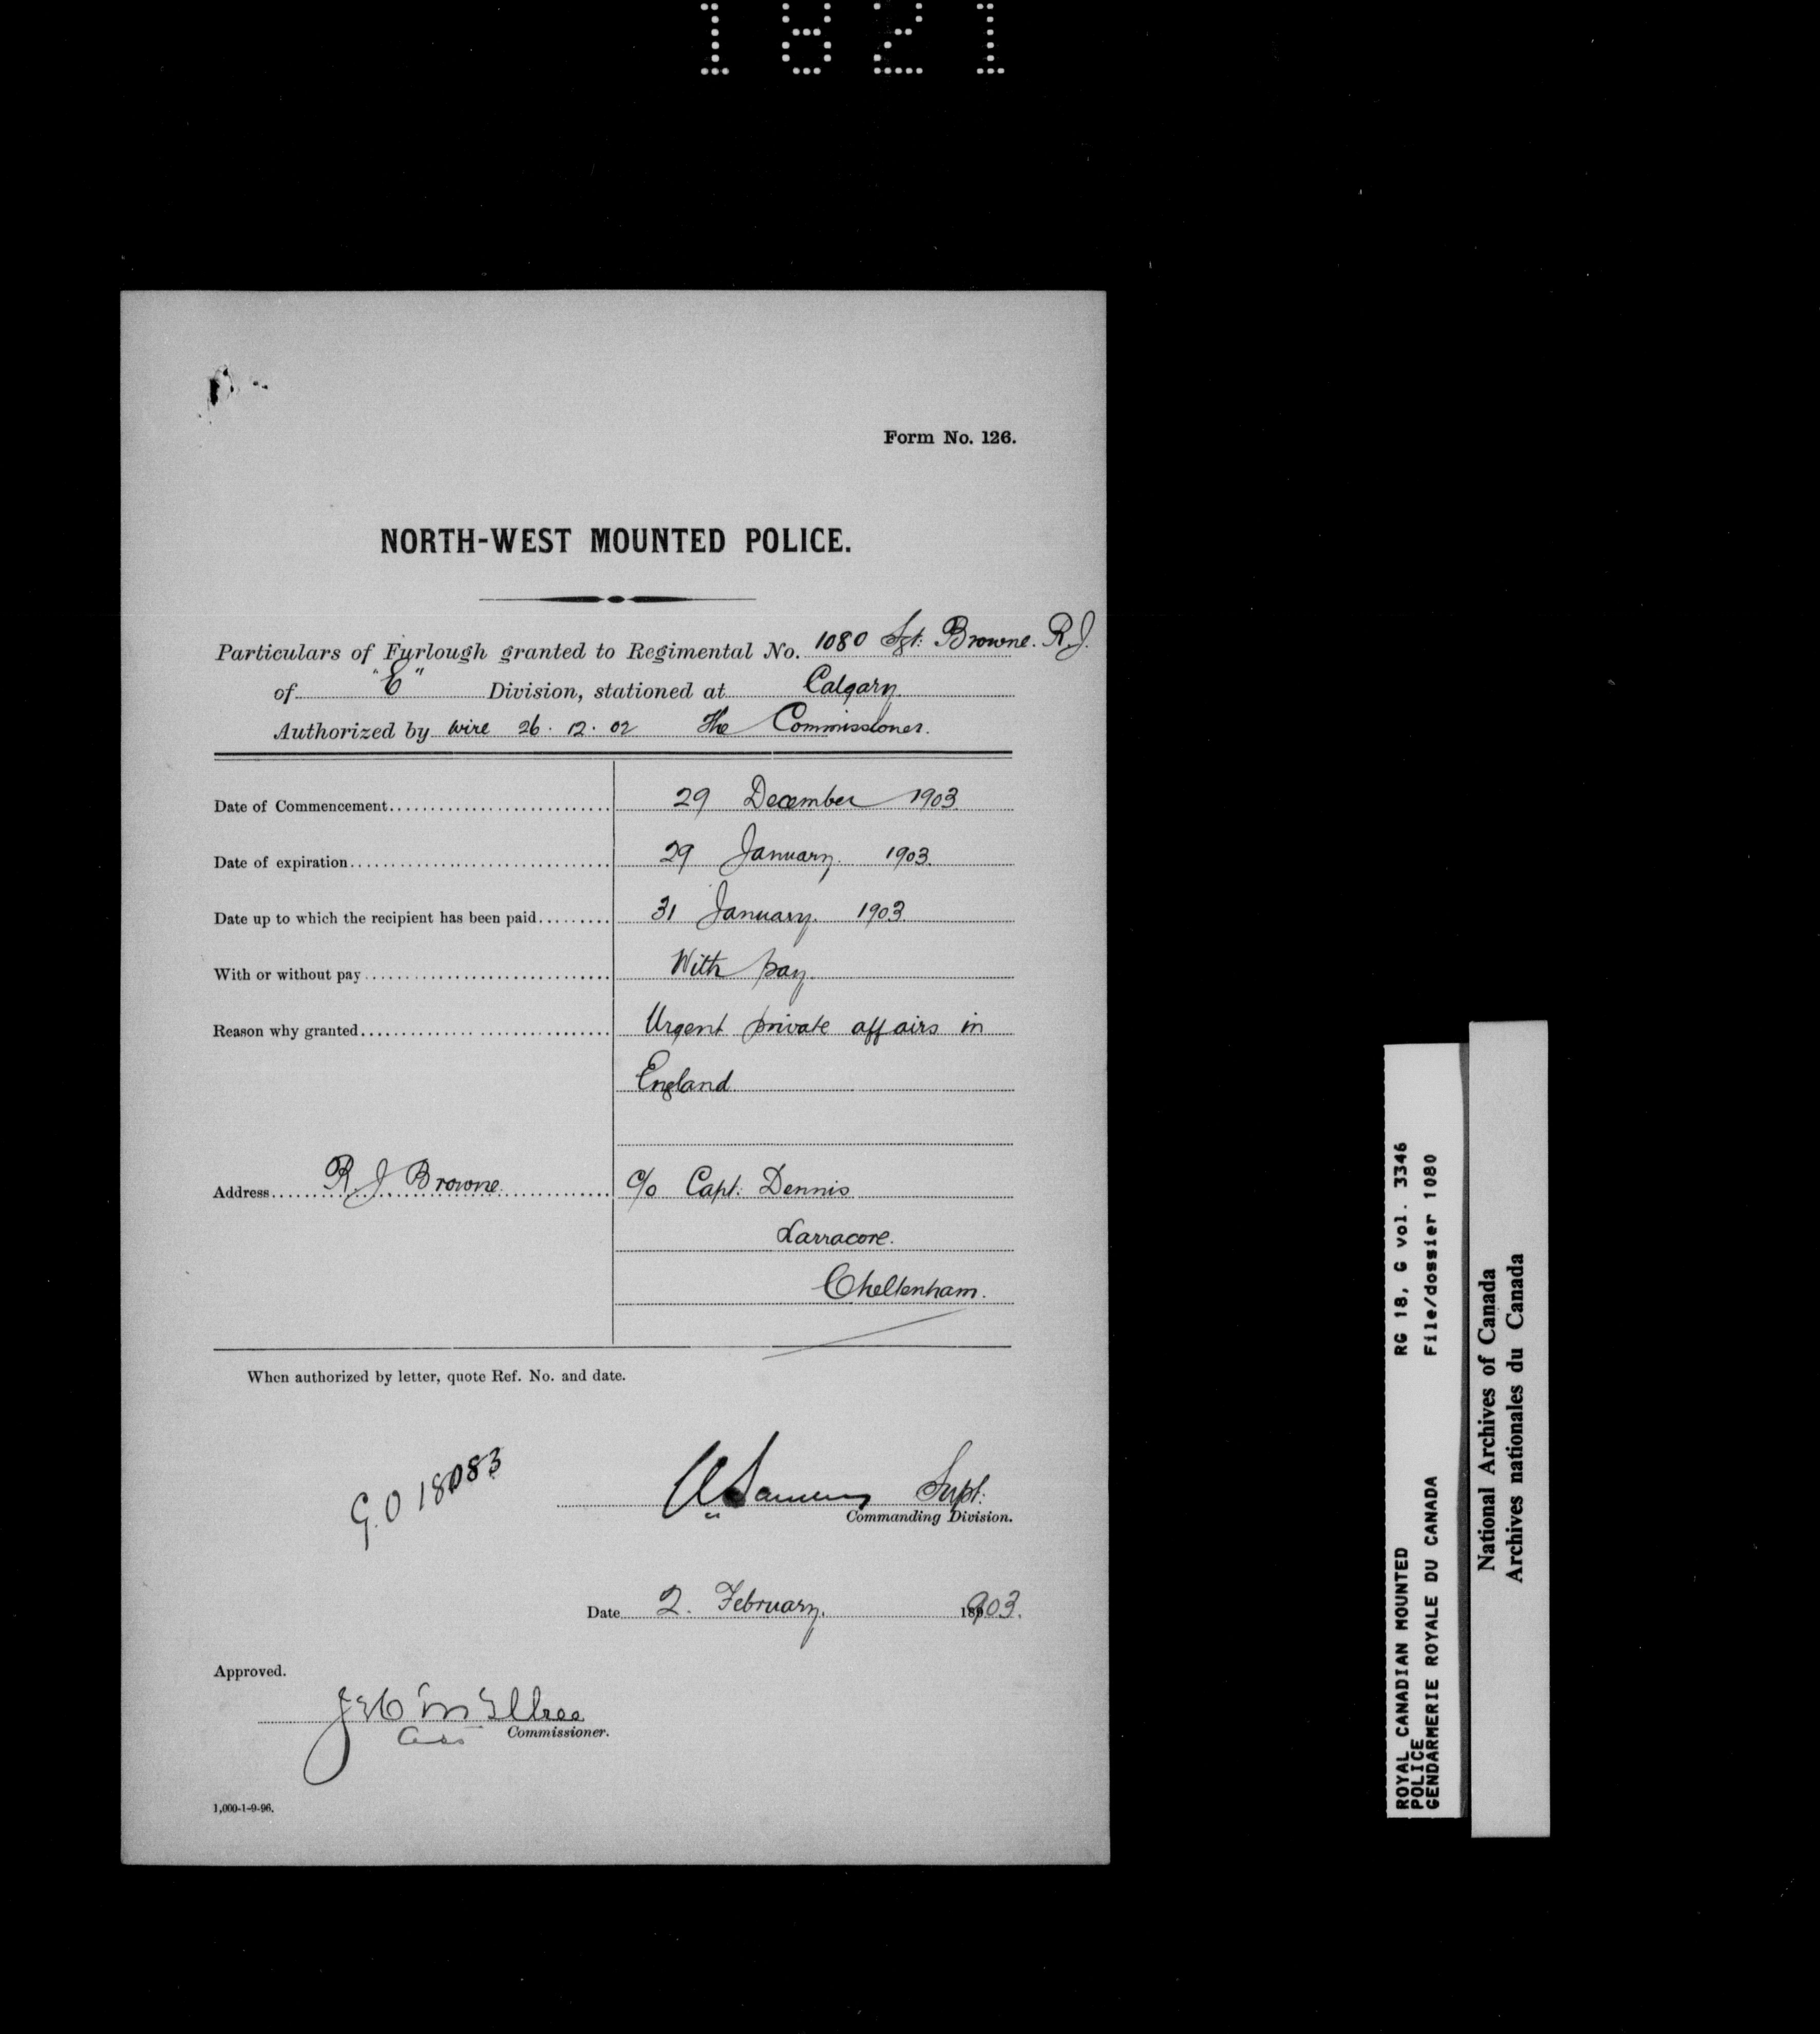 1821
Form No. 126.
NORTH-WEST MOUNTED POLICE.
Particulars of Furlough granted to Regimental No. 1080 Sgt: Browne. R.J.
of "E" Division, stationed at Calgary.
Authorized by wire 26. 12. 02 The Commissioner.
Date of Commencement 29 December 1903.
Date of expiration 29 January. 1903.
Date up to which the recipient has been paid 31 January. 1903
With or without pay With pay.
Reason why granted Urgent private affairs in
England
Address R. J Browne. c/o Capt: Dennis
Larracore.
Cheltenham.
When authorized by letter, quote Ref. No. and date.
G.O 18083
Supt:
Commanding Division.
Date 2. February. 1903.
Approved.
Commissioner.
1,000-1-9-96.
ROYAL CANADIAN MOUNTED RG 18, G vol. 3346
POLICE
GENDARMERIE ROYALE DU CANADA File/dossier 1080
National Archives of Canada
Archives nationales du Canada